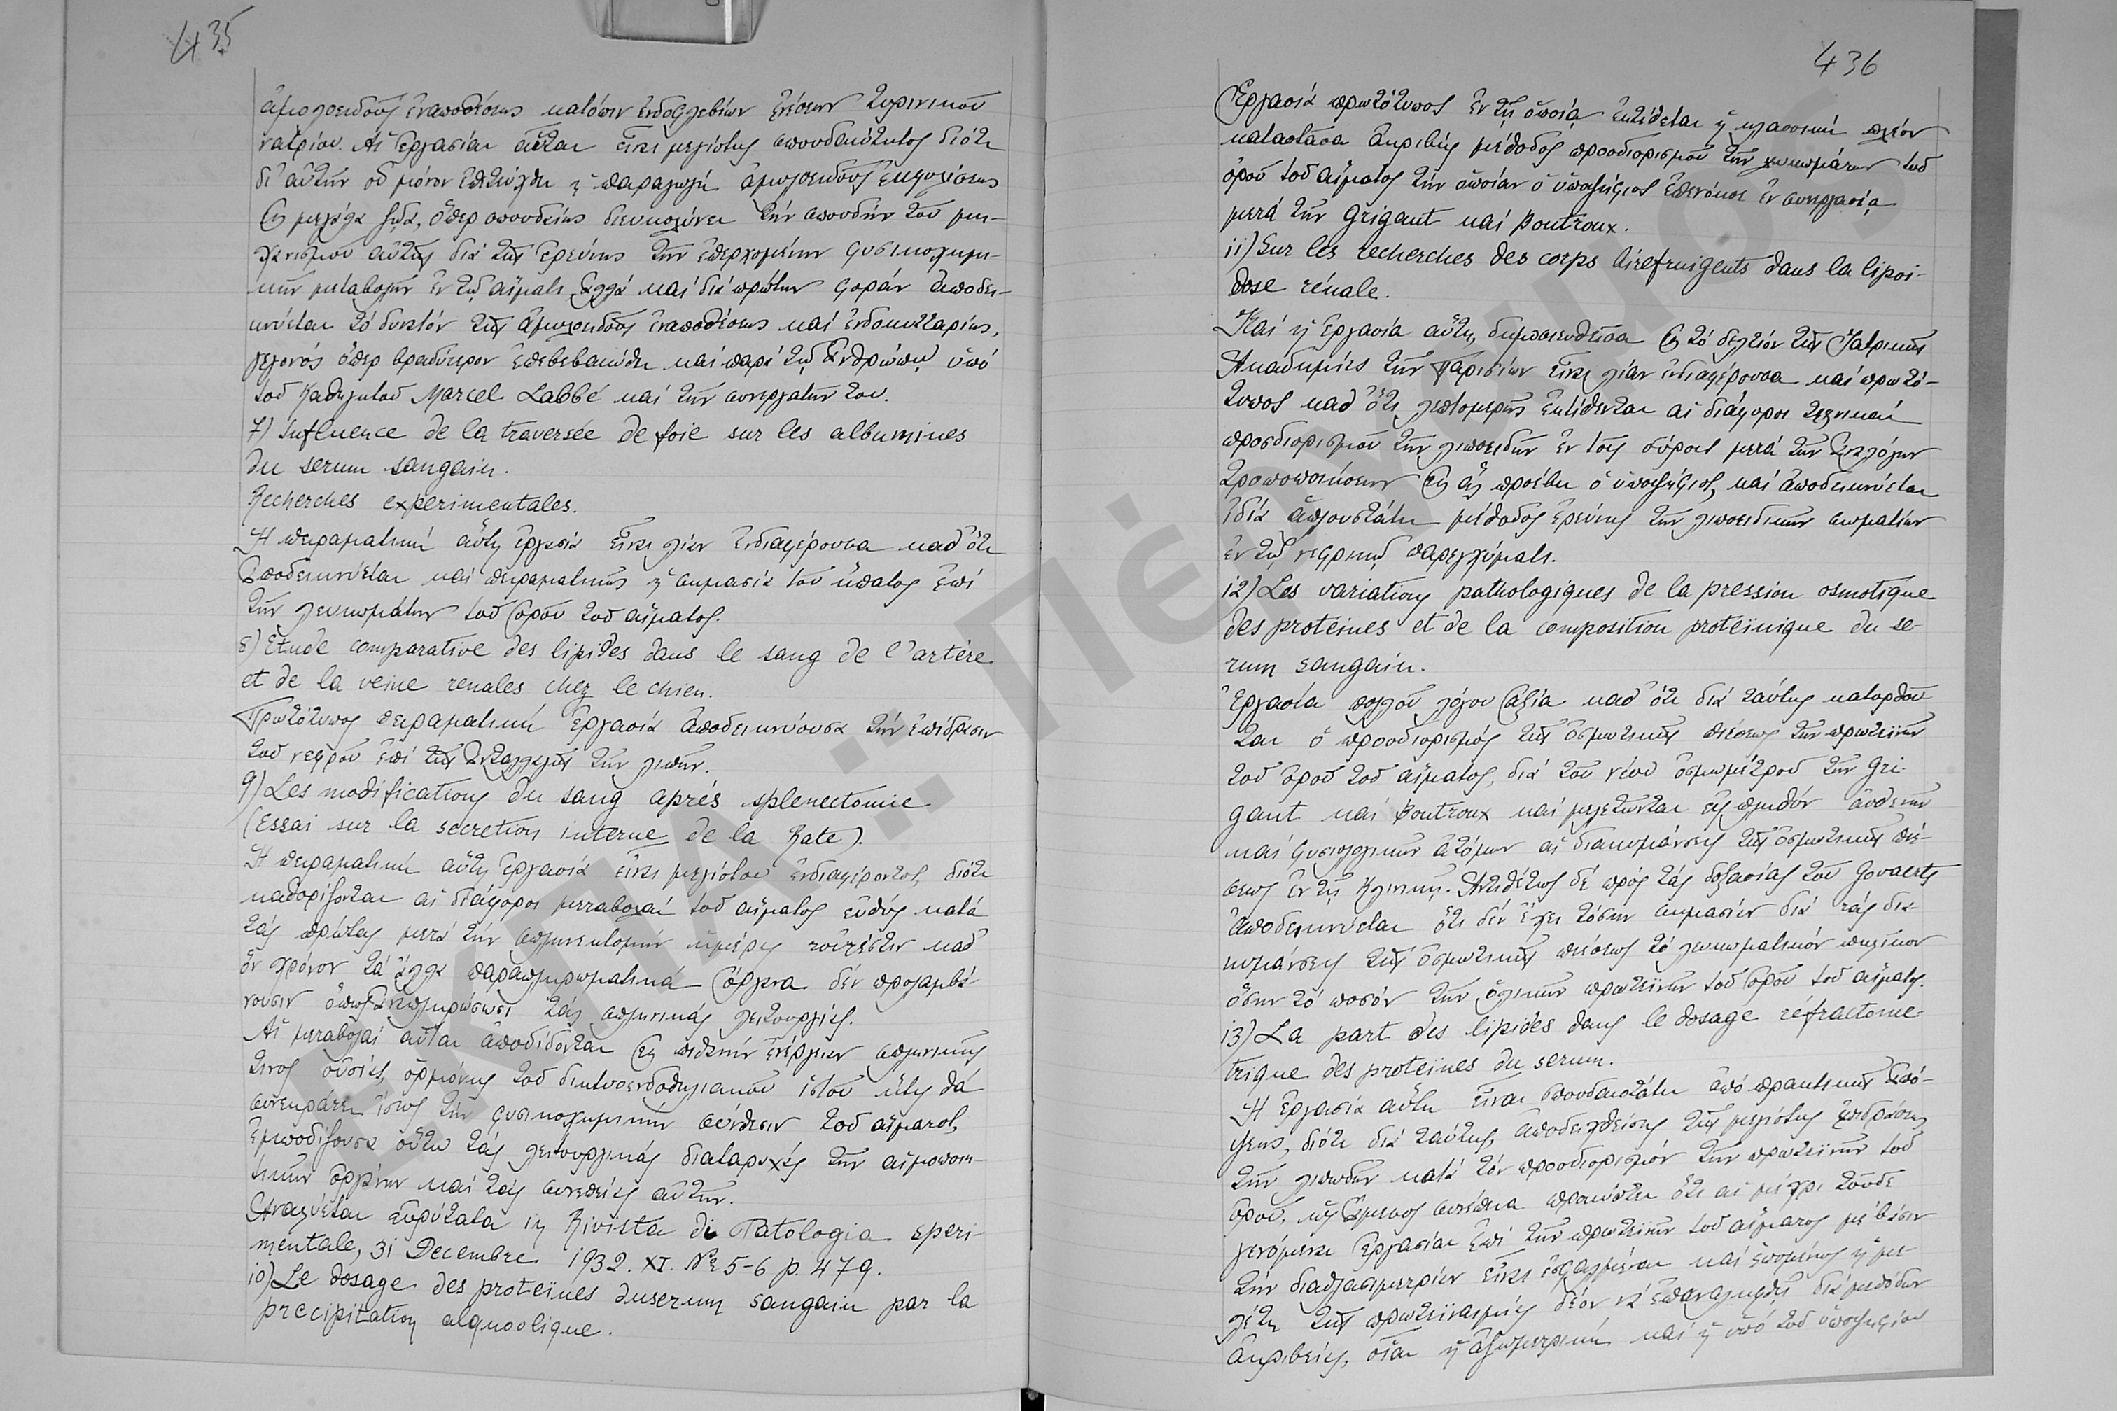 435
ἀμυλοειδοῦς ἐναποθέσεως κατόπιν ἐνδοφλεβίων ἐνέσεων τυρινικοῦ
νατρίου. Αἱ ἐργασίαι αὗται εἶναι μεγίστης σπουδαιότητος διότι
δι' αὐτῶν οὐ μόνον ἐπετεύχθη ἡ παραγωγή ἀμυλοειδοῦς ἐκφυλίσεως
εἰς μεγάλα ζῶα, ὅπερ σπουδαίως διευκολύνει τήν σπουδήν τοῦ μη-
χανισμοῦ αὐτῆς διά τῆς ἐρεύνης τῶν ἐπερχομένων φυσικοχημι-
κῶν μεταβολῶν ἐν τῷ αἵματι ἀλλά καί διά πρώτην φοράν ἀποδει-
κνύεται τό δυνατόν τῆς ἀμυλοειδοῦς ἐναποθέσεως καί ἐνδοκυτταρίως,
γεγονός ὅπερ βραδύτερον ἐπεβεβαιώθη καί παρά τῷ ἀνθρώπῳ ὑπό
τοῦ Καθηγητοῦ Marcel Labbé καί τῶν συνεργατῶν του.
7) Influence de la traversée de foie sur les albumines
du serum sanguin.
Recherches experimentales.
Ἡ πειραματική αὕτη ἐργασία εἶναι λίαν ἐνδιαφέρουσα καθ' ὅτι
ἀποδεικνύεται καί πειραματικῶς ἡ σημασία τοῦ ἥπατος ἐπί
τῶν λευκωμάτων τοῦ ὀροῦ τοῦ αἵματος.
8) Etude comparative des lipides dans le sang de l'artére
et de la veine renales chez le chien.
Πρωτότυπος πειραματική ἐργασία ἀποδεικνύουσα τήν ἐπίδρασιν
τοῦ νεφροῦ ἐπί τῆς ἀνταλλαγῆς τῶν λιπῶν.
9) Les modifications du sang aprés splenectomie
(Essai sur la secretion interne de la Rate).
Ἡ πειραματική αὕτη ἐργασία εἶναι μεγίστου ἐνδιαφέροντος, διότι
καθορίζονται αἱ διάφοροι μεταβολαί τοῦ αἵματος εὐθύς κατά
τάς πρώτας μετά τήν σπληνεκτομήν ἡμέρας τουτέστιν καθ'
ὅν χρόνον τά ἄλλα παραπληρωματικά ὄργανα δέν προλαμβά-
νουσιν ὅπως ἀναπληρώσωσι τάς σπληνικάς λειτουργίας.
Αἱ μεταβολαί αὗται ἀποδίδονται εἰς πιθανήν ἐνέργειαν σπληνικῆς
τινος οὐσίας, ὁρμόνης τοῦ δικτυοενδοθηλιακοῦ ἱστοῦ ἥτις θά
συνεκράτει ἴσως τήν φυσικοχημικήν σύνθεσιν τοῦ αἵματος,
ἐμποδίζουσα οὕτω τάς λειτουργικάς διαταραχάς τῶν αἱμοποιη-
τικῶν ὀργάνων καί τάς συνεπείας αὐτῶν.
Ἀναλύεται εὐρύτατα in Rivista di Patologia speri-
mentale, 31 Decembre 1932. XI. Nº 5-6 p. 479.
10) Le dosage des proteines duserum sanguin par la
precipitation alquoolique.
436
Ἐργασία πρωτότυπος ἐν τῇ ὁποίᾳ ἐκτίθεται ἡ κλασσική πλέον
καταστᾶσα ἀκριβής μέθοδος προσδιορισμοῦ τῶν λευκωμάτων τοῦ
ὀροῦ τοῦ αἵματος τήν ὁποίαν ὁ ὑποψήφιος ἐπενόησε ἐν συνεργασίᾳ
μετά τῶν Grigaut καί Boutroux.
11) Sur les recherches des corps birefruigents dans la lipoi-
dose rénale.
Καί ἡ ἐργασία αὕτη, δημοσιευθεῖσα εἰς τό δελτίον τῆς Ἰατρικῆς
Ἀκαδημίας τῶν Παρισίων εἶναι λίαν ἐνδιαφέρουσα καί πρωτό-
τυπος καθ' ὅτι λεπτομερῶς ἐκτίθενται αἱ διάφοροι τεχνικαί
προσδιορισμοῦ τῶν λιποειδῶν ἐν τοῖς οὔροις μετά τῶν ἀναλόγων
τροποποιήσεων εἰς ἅς προέβη ὁ ὑποψήφιος, καί ἀποδεικνύεται
ἰδίᾳ ἁπλουστάτη μέθοδος ἐρεύνης τῶν λιποειδικῶν σωματίων
ἐν τῷ νεφρικῷ παρεγχύματι.
12) Les variations pathologiques de la pression osmotique
des proteines et de la composition protéinique du se-
rum sanguin.
Ἐργασία πολλοῦ λόγου ἀξία καθ' ὅτι διά ταύτης κατορθοῦ-
ται ὁ προσδιορισμός τῆς ὀσμωτικῆς πιέσεως τῶν πρωτεϊνῶν
τοῦ ὀροῦ τοῦ αἵματος, διά τοῦ νέου ὀσμωμέτρου τῶν Gri-
gaut καί Boutroux καί μελετῶνται εἰς πληθύν ἀσθενῶν
καί φυσιολογικῶν ἀτόμων αἱ διακυμάνσεις τῆς ὀσμωτικῆς πιέ-
σεως ἐν τῇ Κλινικῇ. Ἀντιθέτως δέ πρός τάς δοξασίας τοῦ Govaerts
ἀποδεικνύεται ὅτι δέν ἔχει τόσην σημασίαν διά τάς δια-
κυμάνσεις τῆς ὀσμωτικῆς πιέσεως τό λευκωματικόν πηλίκον
ὅσην τό ποσόν τῶν ὁλικῶν πρωτεϊνῶν τοῦ ὀροῦ τοῦ αἵματος.
13) La part des lipides dans le dosage réfractome-
trique des proteines du serum.
Ἡ ἐργασία αὕτη εἶναι σπουδαιοτάτη ἀπό πρακτικῆς ἀπό-
ψεως, διότι διά ταύτης, ἀποδειχθείσης τῆς μεγίστης ἐπιδράσεως
τῶν λιπωδῶν κατά τόν προσδιορισμόν τῶν πρωτεϊνῶν τοῦ
ὀροῦ, ὡς ἄμεσος συνέπεια προκύπτει ὅτι αἱ μέχρι τοῦδε
γενόμεναι ἐργασίαι ἐπί τῶν πρωτεϊνῶν τοῦ αἵματος μέ βάσιν
τήν διαθλασιμετρίαν εἶναι ἐσφαλμέναι καί ἑπομένως ἡ με-
λέτη τῆς πρωτεϊναιμίας δέον νά ἐπαναληφθῇ διά μεθόδων
ἀκριβείας, οἷαι ἡ ἀζωμετρική καί ἡ ὑπό τοῦ ὑποψηφίου